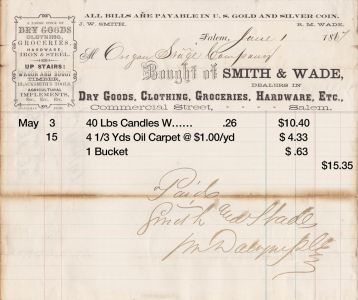 ALL BILLS ARE PAYABLE IN U. S. GOLD AND SILVER COIN.
J. W. SMITH. R. M. WADE.
A LARGE STOCK OF
DRY GOODS
CLOTHING,
GROCERIES,
HARDWARE,
IRON & STEEL.
UP STAIRS:
WAGON AND BUGGY
TIMBER,
BLACKSMITH'S TOOLS,
AGRICULTURAL
IMPLEMENTS,
&c., &c., &c.
Salem, June 1 1867
M Oregon Stage Company
Bought of SMITH & WADE,
DEALERS IN
DRY GOODS, CLOTHING, GROCERIES, HARDWARE, ETC.,
Commercial Street, Salem.
May 3 40 Lbs Candles W...... .26 $10.40
15 4 1/3 Yds Oil Carpet @ $1.00/yd $ 4.33
1 Bucket $ .63
$15.35
Paid
Smith and Wade